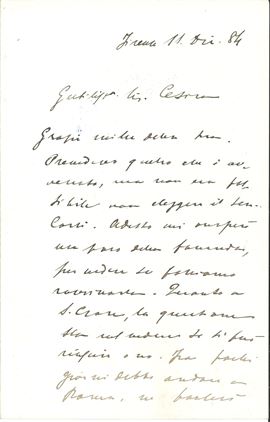 Firenze 11. Dic. 84
Gentiliss. Sig. Cesare
Grazie mille della sua.
Prevedevo quello che è av-
venuto, ma non era pos-
sibile non eleggere il Sen.
Corsi. Adesto mi
un poco della faccenda,
per vedere se possiamo
Quanto a
S. Croce, la questione
sta nel vedere se si può
o no. Fra pochi
giorni debbo andare a
Roma, ne parlerò